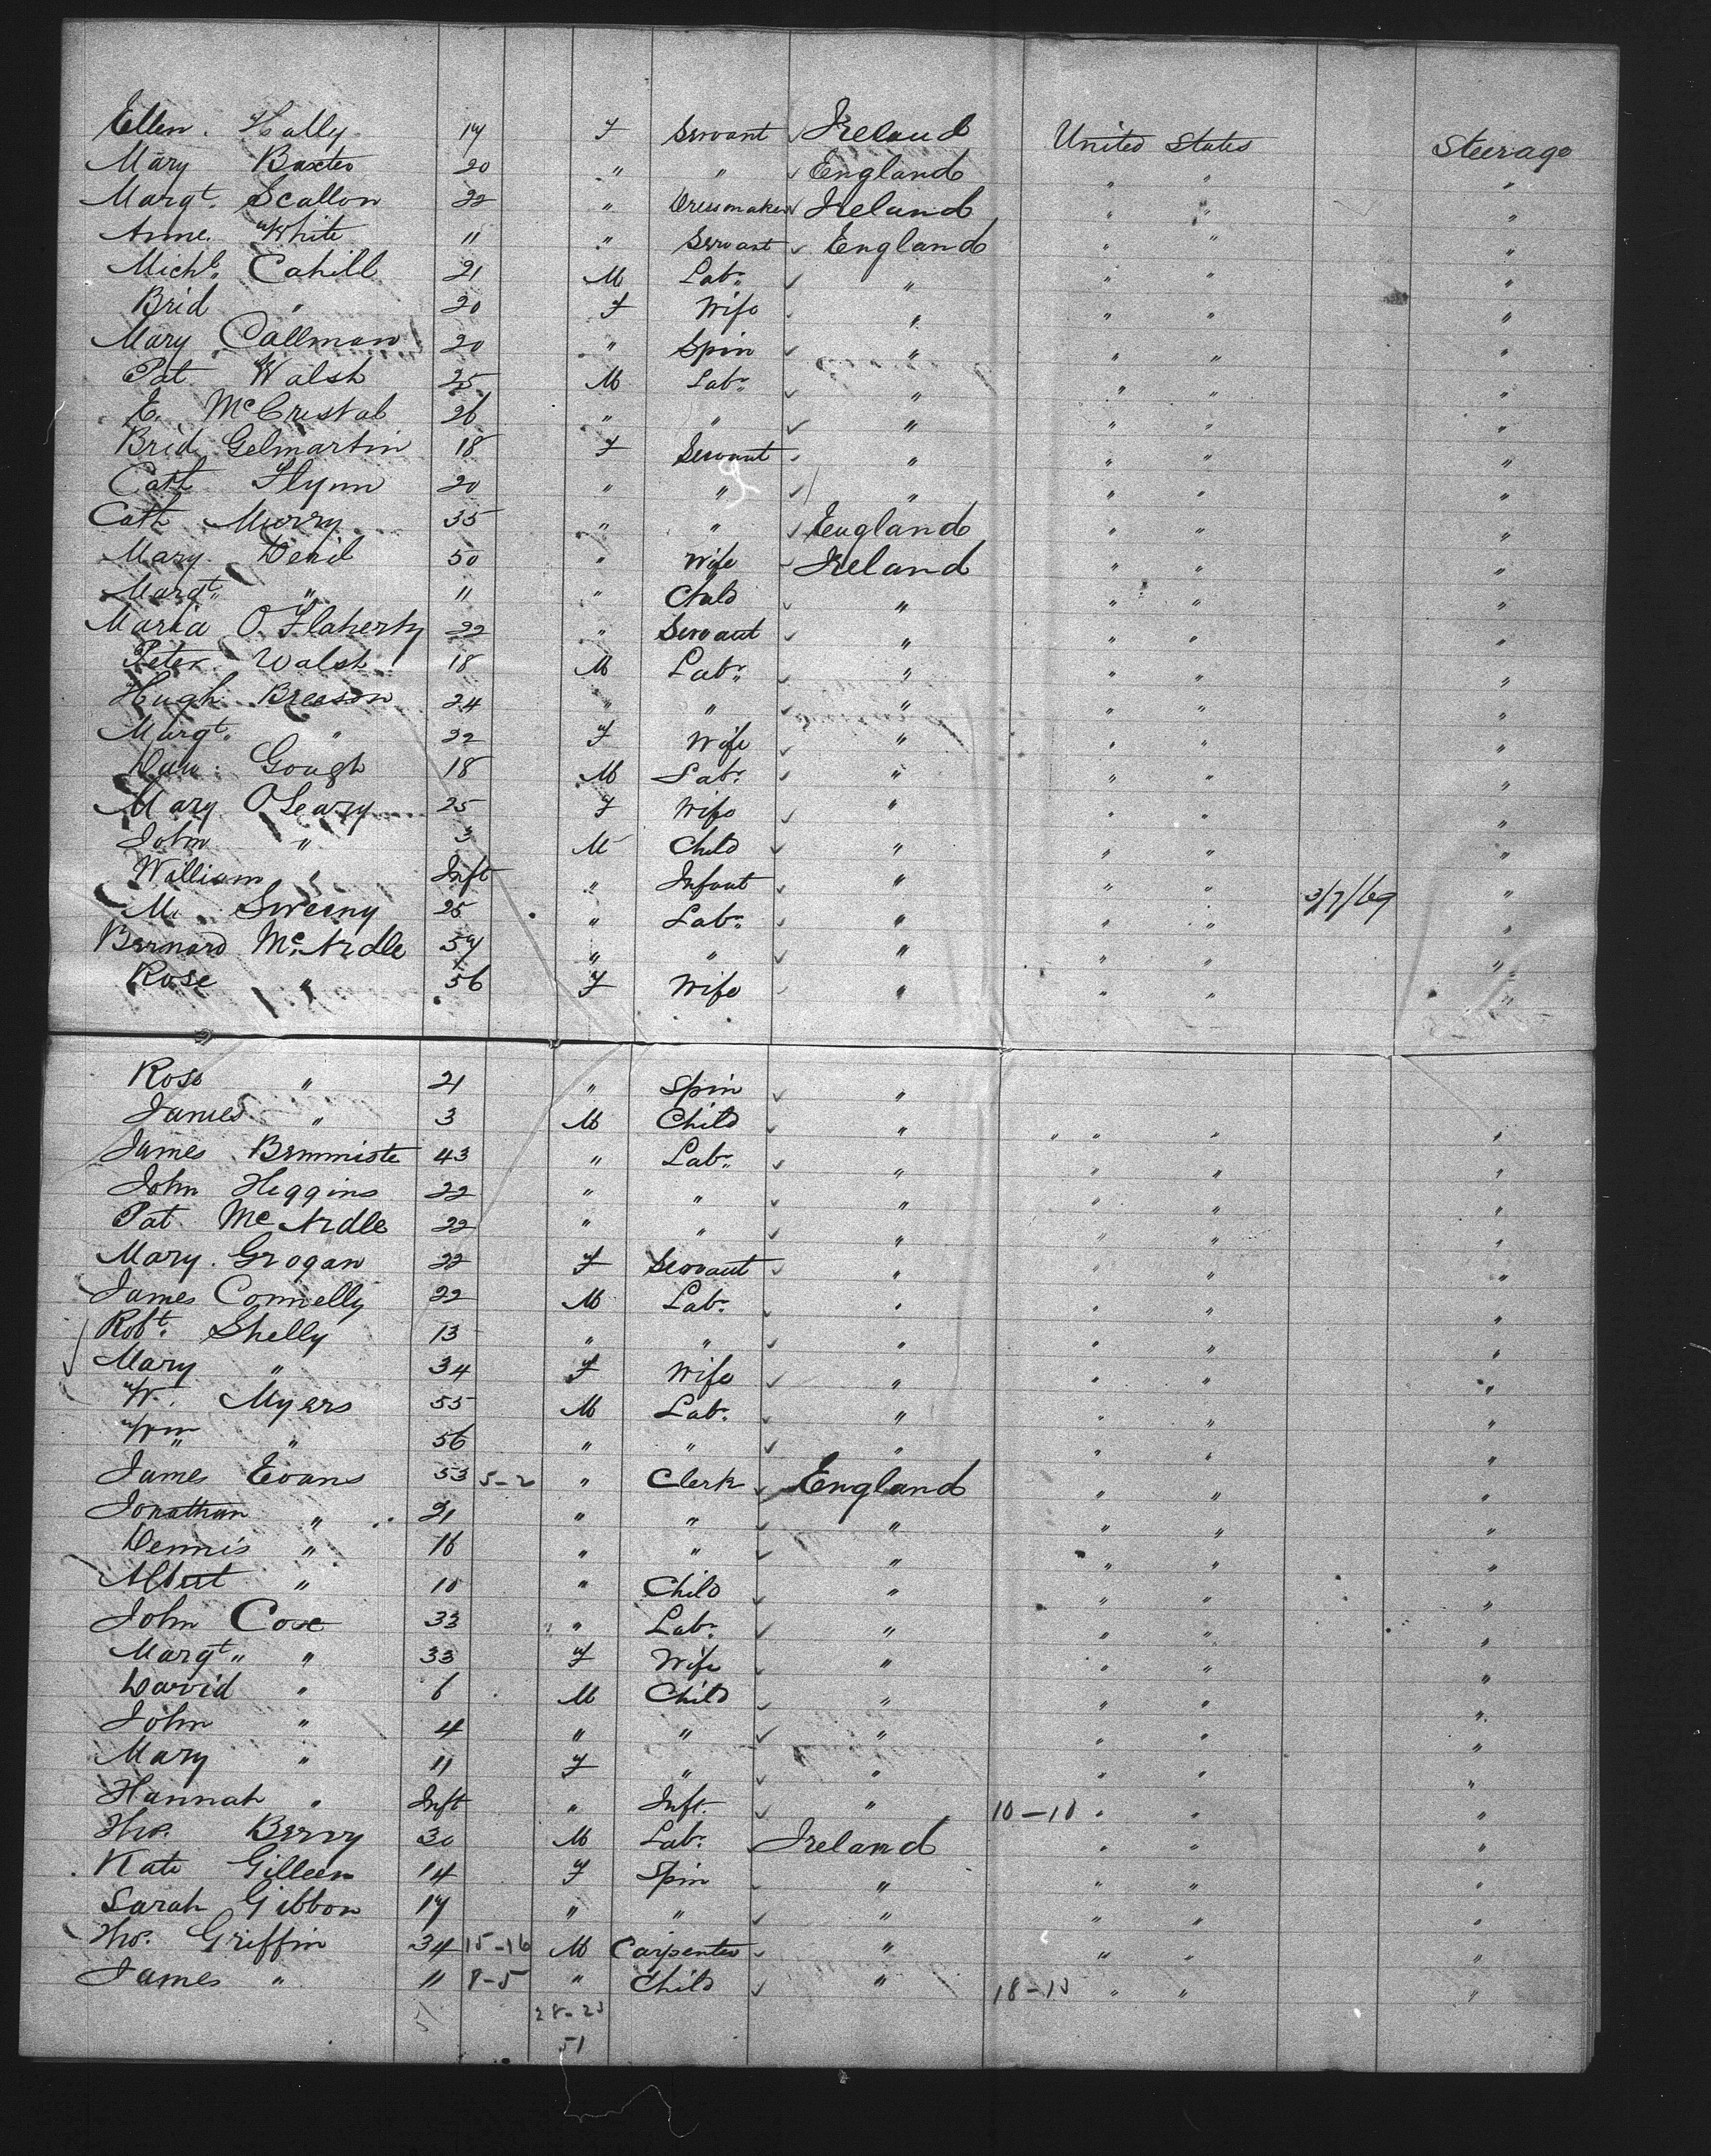 Ellen. Hally. 17 F Servant Ireland United States Steerage
Mary Baxter 20 " " England " " "
Margt. Scallon 22 " Dressmaker Ireland " " "
Anne. White 11 " Servant England " " "
Michl. Cahill 21 M Labr. " " " "
Brid " 20 F Wife " " " "
Mary Callman 20 " Spin " " " "
Pat Walsh 25 M Labr. " " " "
E. McCrystal 26 " " " " " "
Brid Gelmartin 18 F Servant " " " "
Cath Flynn 20 " " " " " "
Cath Murry 35 " " England " " "
Mary 50 " Wife Ireland " " "
Margt. " 11 " Child " " " "
Maria O'Flaherty 22 " Servant " " " "
Peter Walsh 18 M Labr. " " " "
Hugh 24 " " " " " "
Margt. " 22 F Wife " " " "
Gough 18 M Labr. " " " "
Mary O'Leary 25 F Wife " " " "
John " 3 M Child " " " "
William " Inft " Infant " " " "
M. Sweeny 25 " Labr. " " " 3/7/69 "
Bernard McArdle 57 " " " " " "
Rose " 56 F Wife " " " "
Rose " 21 " Spin "
James " 3 M Child " " " "
James 43 " Labr. " " " "
John Higgins 22 " " " " " "
Pat McArdle 22 " " " " " "
Mary. Grogan 22 F Servant " " " "
James Connelly 22 M Labr. " " " "
Robt. Shelly 13 " " " " " "
Mary " 34 F Wife " " " "
W. Myers 55 M Labr. " " " "
Wm " 56 " " " " " "
James Evans 53 5-2 " Clerk England " " "
Jonathan " 21 " " " " " "
Dennis " 16 " " " " " "
Albert " 10 " Child " " " "
John Coxe 33 " Labr. " " " "
Margt. " 33 F Wife " " " "
David " 6 M Child " " " "
John " 4 " " " " " "
Mary " 11 F " " " " "
Hannah " Inft " Inft. " 10-10 " " "
Tho. Berry 30 M Labr. Ireland " " "
Kate Gilleen 14 F Spin " " " "
Sarah Gibbon 17 " " " " " "
Tho. Griffin 34 15-16 M Carpenter " " " "
James " 11 8-5 " Child " 18-10 " " "
28-23
51